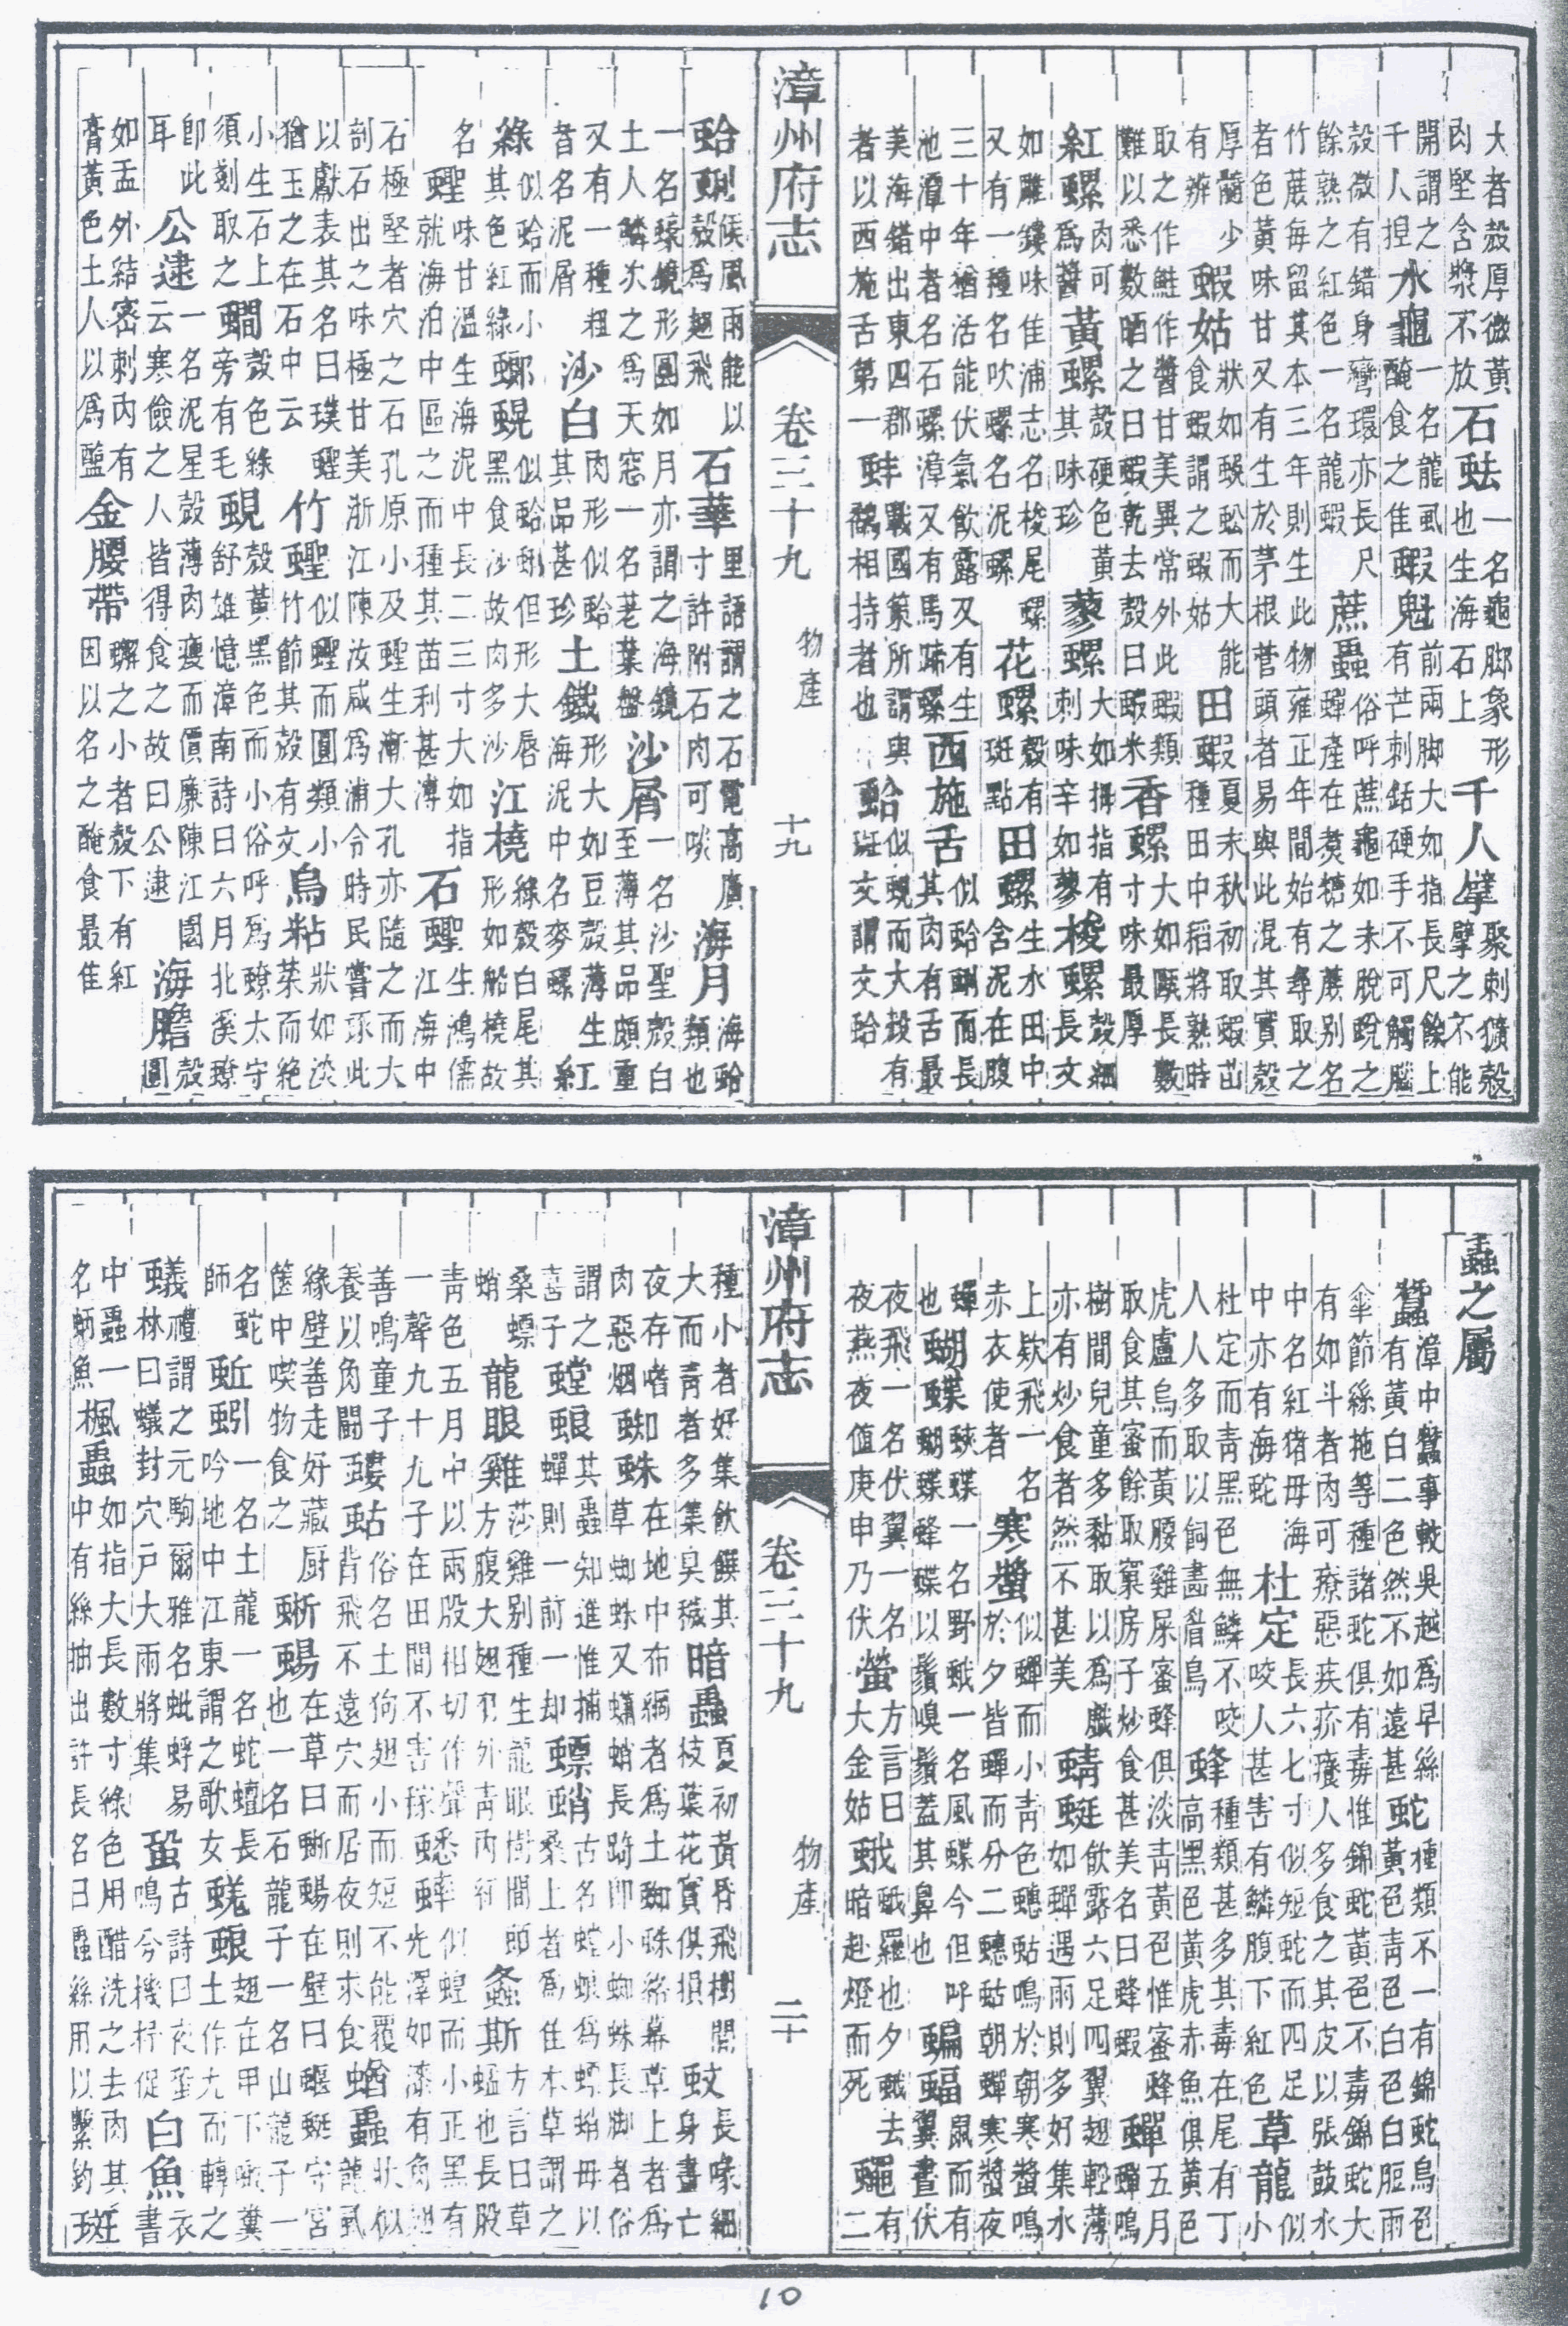 大者殼厚微黃
肉堅含漿不放
石𧉧
一名龜脚象形
也生海石上
千人擘
聚刺獷殼
擘之不能
開謂之
千人捏
水龜
一名龍虱
醃食之佳
蝦魁
前兩脚大如指長尺餘上
有芒刺銛硬手不可觸腦
殼微有錯身彎環亦長尺
餘熟之紅色一名龍蝦
蔗蟲
俗呼蔗龜如未脫蛻之
蟬產在煑糖之蔗别名
竹蔗每留其本三年則生此物雍正年間始有尋取之
者色黃味甘又有生於茅根菅頭者易與此混其實殼
厚 少
有辨
蝦姑
狀如蝦蚣而大能
食蝦謂之蝦姑
田蝦
夏末秋初取蝦苗
種田中稻將熟時
取之作鮭作醬甘美異常外此蝦類
難以悉數晒之曰蝦乾去殼曰蝦米
香螺
大如甌長數
寸味最厚
紅螺
肉可
為醬
黃螺
殼硬色黃
其味珍
蓼螺
大如拇指有
刺味辛如蓼
梭螺
殼細
長文
如雕鏤味佳浦志名梭尾螺
又有一種名吹螺名泥螺
花螺
殼有
斑點
田螺
生水田中
含泥在腹
三十年猶活能伏氣飲露又有生
池潭中者名石螺漳又有馬蹄螺
西施舌
似蛤蜊而長
其肉有舌最
美海錯出東四郡
者以西施舌第一
蚌
戰國策所謂與
鷸相持者也
蛤
似蜆而大殼有
斑文謂文蛤
漳州府志
卷三十九
物產
十九
蛤蜊
候風雨能以
殼為翅飛
石華
里語謂之石 高廣
寸許附石肉可啖
海月
海蛤
類也
一名蠔鏡形圓如月亦謂之海鏡
土人鱗次之為天窓一名荖葉盤
沙屑
一名沙聖殼白
至薄其品頗重
又有一種粗
者名泥屑
沙白
肉形似蛤
其品甚珍
土鐵
形大如豆殼薄生
海泥中名麥螺
紅
綠
似蛤而小
其色紅綠
螂蜆
似蛤蜊但形大唇
黑食沙故肉多沙
江橈
綠殼白尾其
形如船橈故
名
蟶
味甘溫生海泥中長二三寸大如指
就海泊中區之而種其苗利甚溥
石蟶
生鴻儒
江海中
石極堅者穴之石孔原小及蟶生漸大孔亦隨之而大
剖石出之味極甘美浙江陳汝咸為浦令時民嘗琢此
以獻表其名曰璞蟶
猶玉之在石中云
竹蟶
似蟶而圓類小
竹節其殼有文
烏粘
狀如淡
菜而絕
小生石上
須剔取之
殼色綠
旁有毛
蜆
殼黃黑色而小俗呼為蟟太守
舒雄憶漳南詩曰六月北溪蟟
即此
耳
公逮
一名泥星殼薄肉瘦而價廉陳江園
云寒儉之人皆得食之故曰公逮
海膽
殼
圓
如盂外結密刺內有
膏黃色土人以為鹽
金腰帶
蠏之小者殼下有紅
因以名之醃食最佳
蟲之屬
蠶
漳中蠶事較吳越為早絲
有黃白二色然不如遠甚
蛇
種類不一有錦蛇烏色
黃色青色白色白腹雨
傘節絲拖等種諸蛇俱有毒惟錦蛇黃色不毒錦蛇大
有如斗者肉可療惡疾疥癢人多食之其皮以張鼓水
中名紅猪母海
中亦有海蛇
杜定
長六七寸似短蛇而四足
咬人甚害有鱗腹下紅色
草龍
似
小
杜定而青黑色無鱗不咬
人人多取以飼畫眉鳥
蜂
種類甚多其毒在尾有丁
高黑色黃虎赤魚俱黃色
虎盧烏而黃腰雞屎蜜蜂俱淡青黃色惟蜜蜂
取食其蜜餘取窠房子炒食甚美名曰蜂蝦
蟬
五月
蟬鳴
樹間兒童多黏取以為戲
亦有炒食者然不甚美
蜻蜓
飲露六足四翼翅輕薄
如蟬遇雨則多好集水
上欵飛一名
赤衣使者
寒螿
似蟬而小青色蟪蛄鳴於朝寒螿鳴
於夕皆蟬而分二蟪蛄朝蟬寒螿夜
蟬
也
蝴蝶
蛺蝶一名野蛾一名風蝶今但呼
蝴蝶蜂蝶以鬚嗅鬚蓋其鼻也
蝙蝠
鼠而有
翼晝伏
夜飛一名伏翼一名
夜燕夜值庚申乃伏
螢
方言曰
大金姑
蛾
蛾羅也夕蛾去
暗赴燈而死
蠅
有
二
漳州府志
卷三十九
物產
二十
種小者好集飲饌其
大而青者多集臭穢
暗蟲
夏初黃昏飛樹間
枝葉花實俱損
蚊
長喙細
身晝亡
夜存嗜
肉惡烟
蜘蛛
在地中布網者為土蜘蛛絡幕草上者為
草蜘蛛又蠨蛸長踦即小蜘蛛長脚者俗
謂之
喜子
螳蜋
其蟲知進惟捕
蟬則一前一却
螵蛸
古名螳蜋為螵蛸毋以
桑上者為佳本草謂之
桑螵
蛸
龍眼雞
莎雞别種生龍眼樹間即
方腹大翅 外青內紅
螽斯
方言曰草
蜢也長股
青色五月中以兩股相切作聲
一聲九十九子在田間不害稼
蟋蟀
似蝗而小正黑有
光澤如漆有角翅
善鳴童子
養以角闘
螻蛄
俗名土狗翅小而短不能覆
背飛不遠穴而居夜則求食
蝤蟲
狀似
龍虱
緣壁善走好藏厨
篋中喫物食之
蜥蜴
在草曰蜥蜴在壁曰蝘蜓守宮
也一名石龍子一名山龍子一
名蛇
師
蚯蚓
一名土龍一名蛇蟺長
吟地中江東謂之歌女
蜣蜋
翅在甲下噉糞
土作丸而轉之
蟻
禮謂之元駒爾雅名蚍蜉易
林曰蟻封穴戶大雨將集
蛩
古詩曰夜蛩
鳴兮機杼促
白魚
衣
書
中蟲一
名蛃魚
楓蟲
如指大長數寸綠色用醋洗之去肉其
中有絲抽出許長名曰蟲絲用以繫釣
斑
10